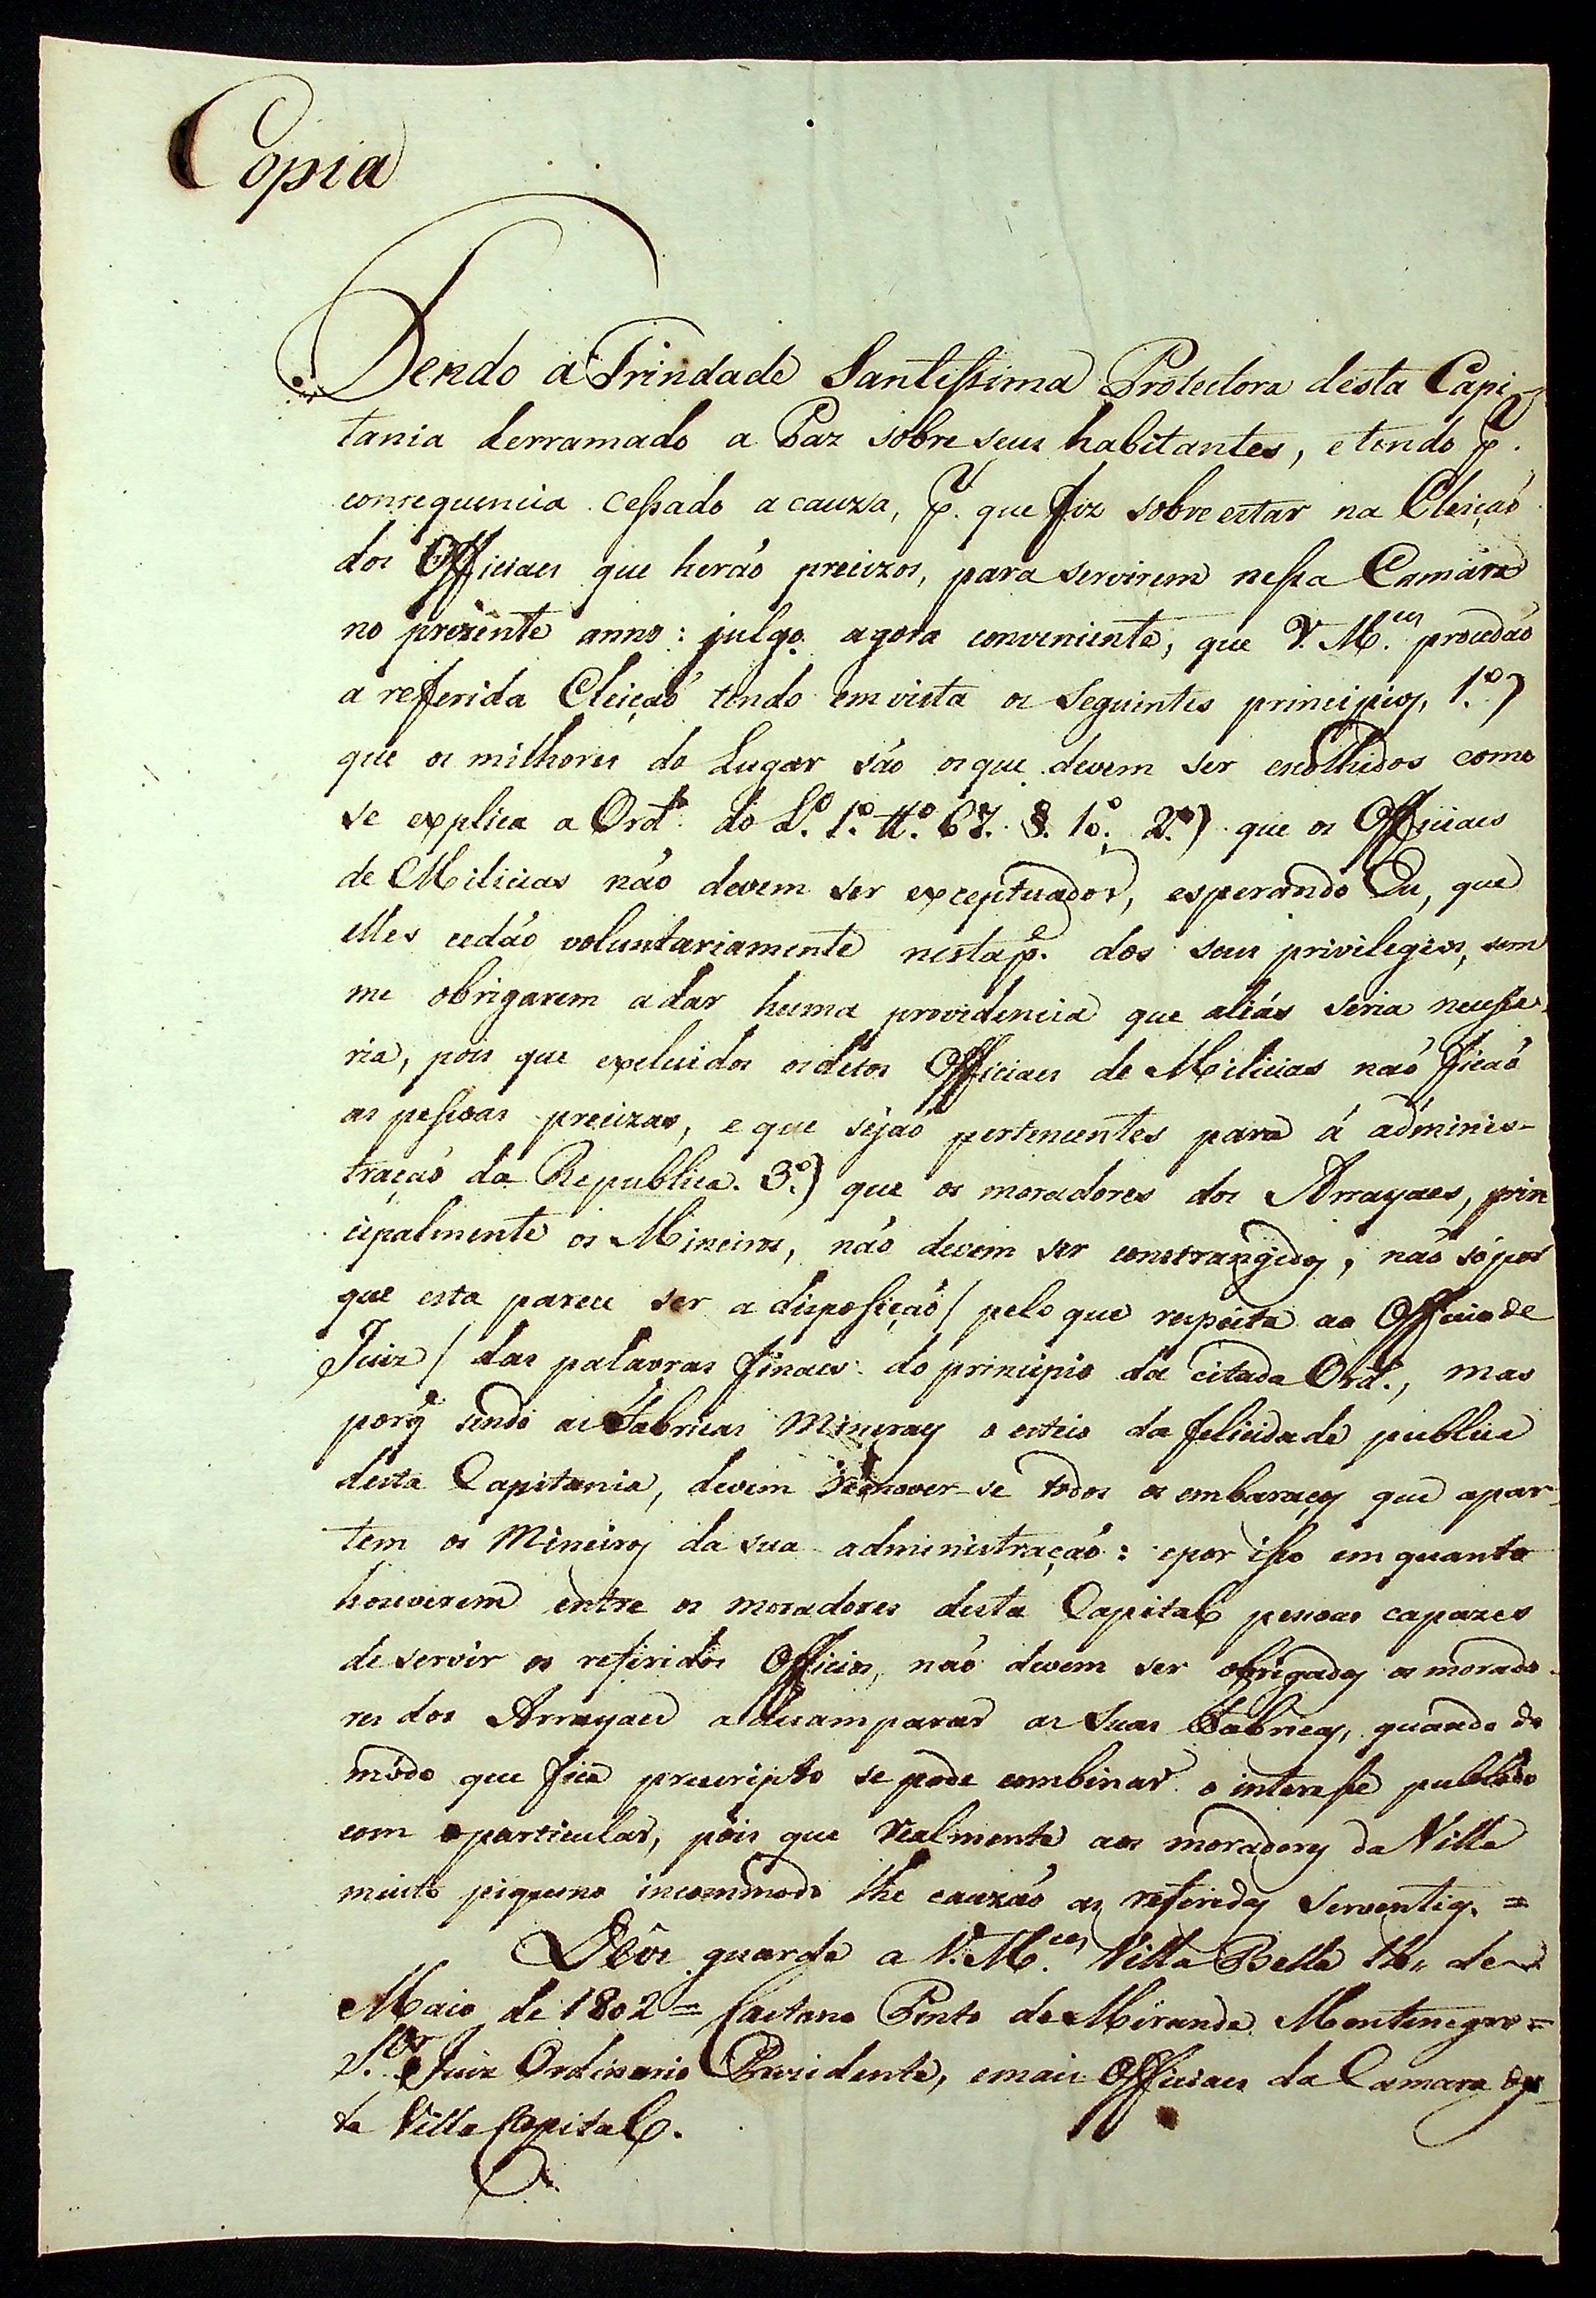 Copia
Tendo a Trindade Santissima Protectora desta Capi-
tania derramado a Paz sobre seus habitantes, e tendo p.
consequencia cessado a cauza, p. que fiz sobre estar na Eleição
dos Officiaes que herão precizos, para servirem nessa Camara
no prezente anno: julgo agora conveniente, que V. M.ces procedão
a referida Eleição tendo em vista os seguintes principios, 1.º)
que os milhores do Lugar são os que devem ser escolhidos como
se explica a Ord. do L.º 1.º tt.º 67. §. 1º. 2.º) que os Officiaes
de Milicias não devem ser exceptuados, esperando Eu, que
elles cedão voluntariamente nesta p.e dos seus privilegios, sem
me obrigarem a dar huma providencia que aliás seria necessa-
ria, pois que excluidos os ditos Officiaes de Milicias não ficão
as pessoas precizas, e que sejão pertencentes para á adminis-
tração da Republica. 3.º) que os moradores dos Arrayaes, prin
cipalmente os Mineiros, não devem ser constrangidos, não só por
que esta parece ser a disposição / pelo que respeita ao Officio de
Juiz / das palavras finaes do principio da citada Ord., mas
porq̃ sendo as Fabricas Mineraes o esteio da felicidade publica
desta Capitania, devem remover-se todos os embaraços que apar-
tem os Mineiros da sua administração: e por isso em quanto
houverem entre os moradores desta Capital pessoas capazes
de servir os referidos Officios, não devem ser obrigados os morado-
res dos Arrayaes a desamparar as suas Fabricas, quando do
módo que fica prescripto se pode combinar o interesse publico
com o particular, pois que realmente aos moradores da Villa
muito piqueno incommodo lhe cauzão as referidas serventias. =
Deos guarde a V. M.ces Villa Bella de
Maio de 1802 = Caetano Pinto de Miranda Montenegro =
S.or Juiz Ordinario Prezidente, e mais Officiaes da Camara des-
ta Villa Capital.